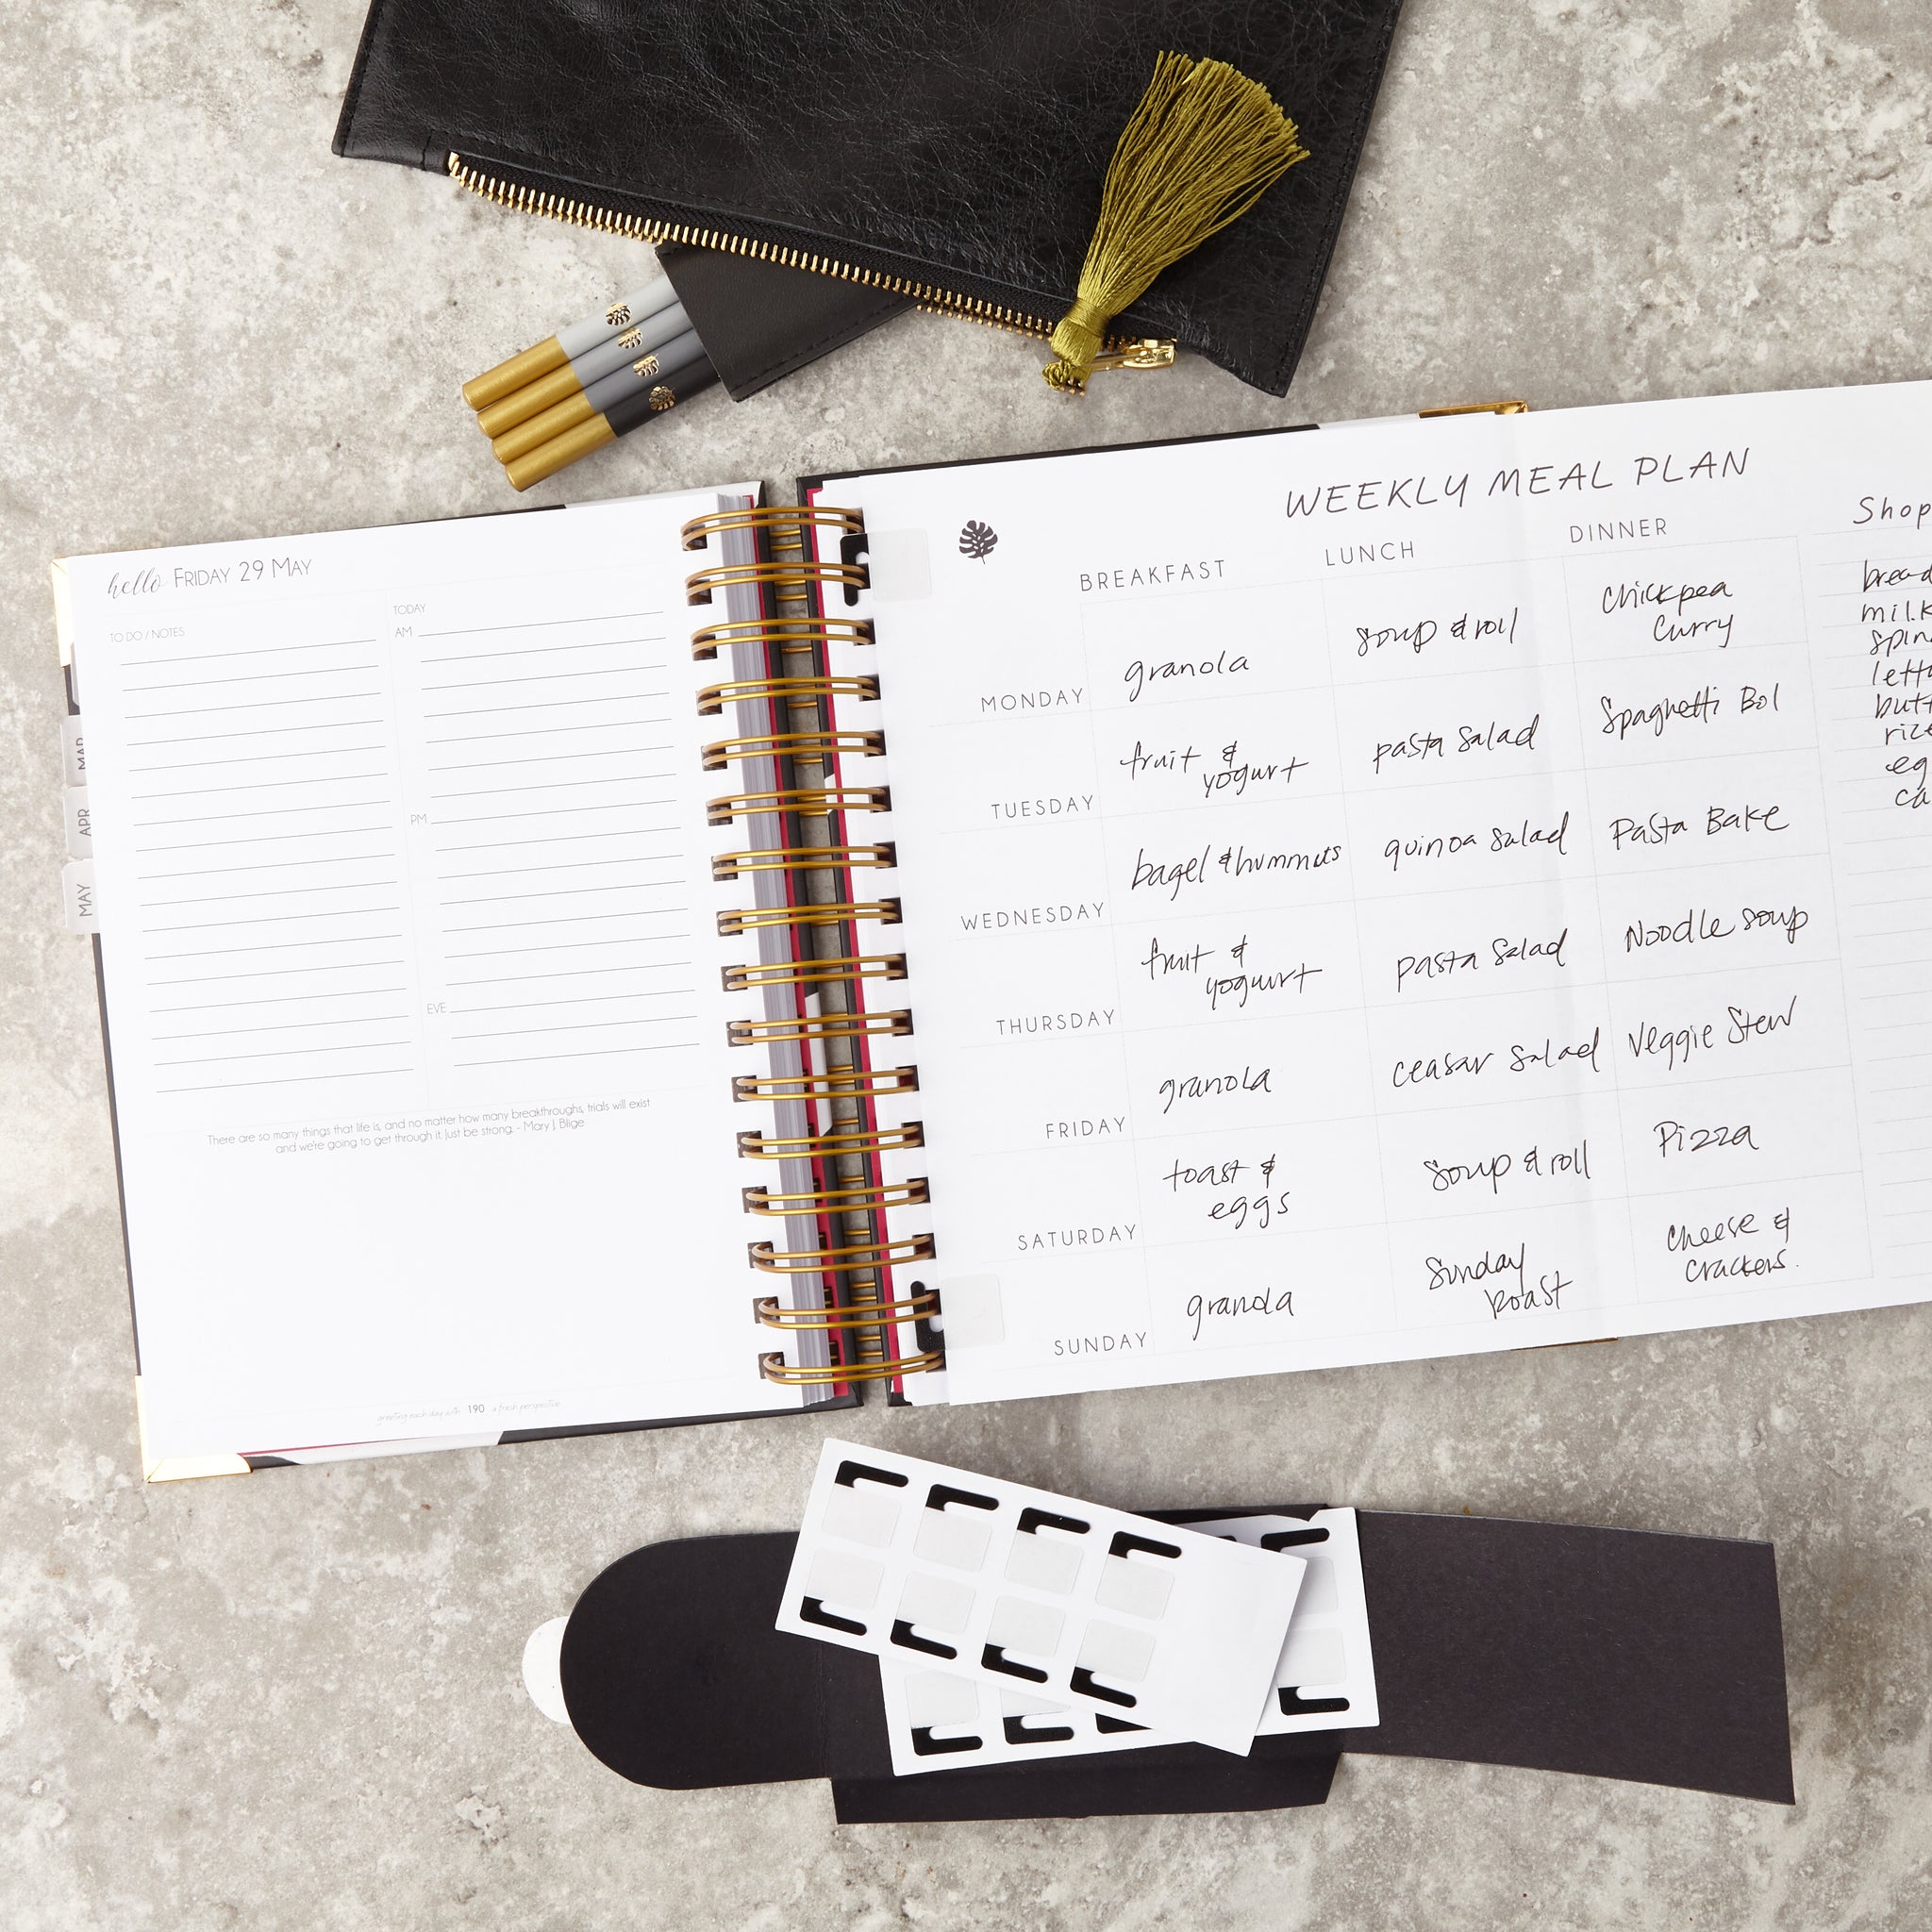 hello FRIDAY 29 MAY
TO DO / NOTES
TODAY
AM
PM
EVE
There are so many things that life is, and no matter how many breakthroughs, trials will exist
and we're going to get through it. Just be strong. - Mary J. Blige
greeting each day with 190 a fresh perspective
MAR
APR
MAY
WEEKLY MEAL PLAN
BREAKFAST LUNCH DINNER
MONDAY
granola
soup & roll
Chickpea
Curry
TUESDAY
fruit &
yogurt
pasta salad
Spaghetti Bol
WEDNESDAY
bagel & hummus
quinoa salad
Pasta Bake
THURSDAY
fruit &
yogurt
pasta salad
Noodle soup
FRIDAY
granola
ceasar salad
Veggie Stew
SATURDAY
toast &
eggs
soup & roll
Pizza
SUNDAY
granola
Sunday
Roast
Cheese &
crackers.
Shop
bread
milk
spin
lettu
butt
rice
eg
ca